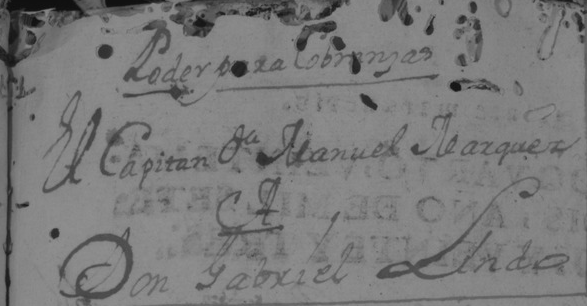 Poder para Cobranzas
El Capitan Dn Manuel Marquez
A
Don Gabriel Lindo